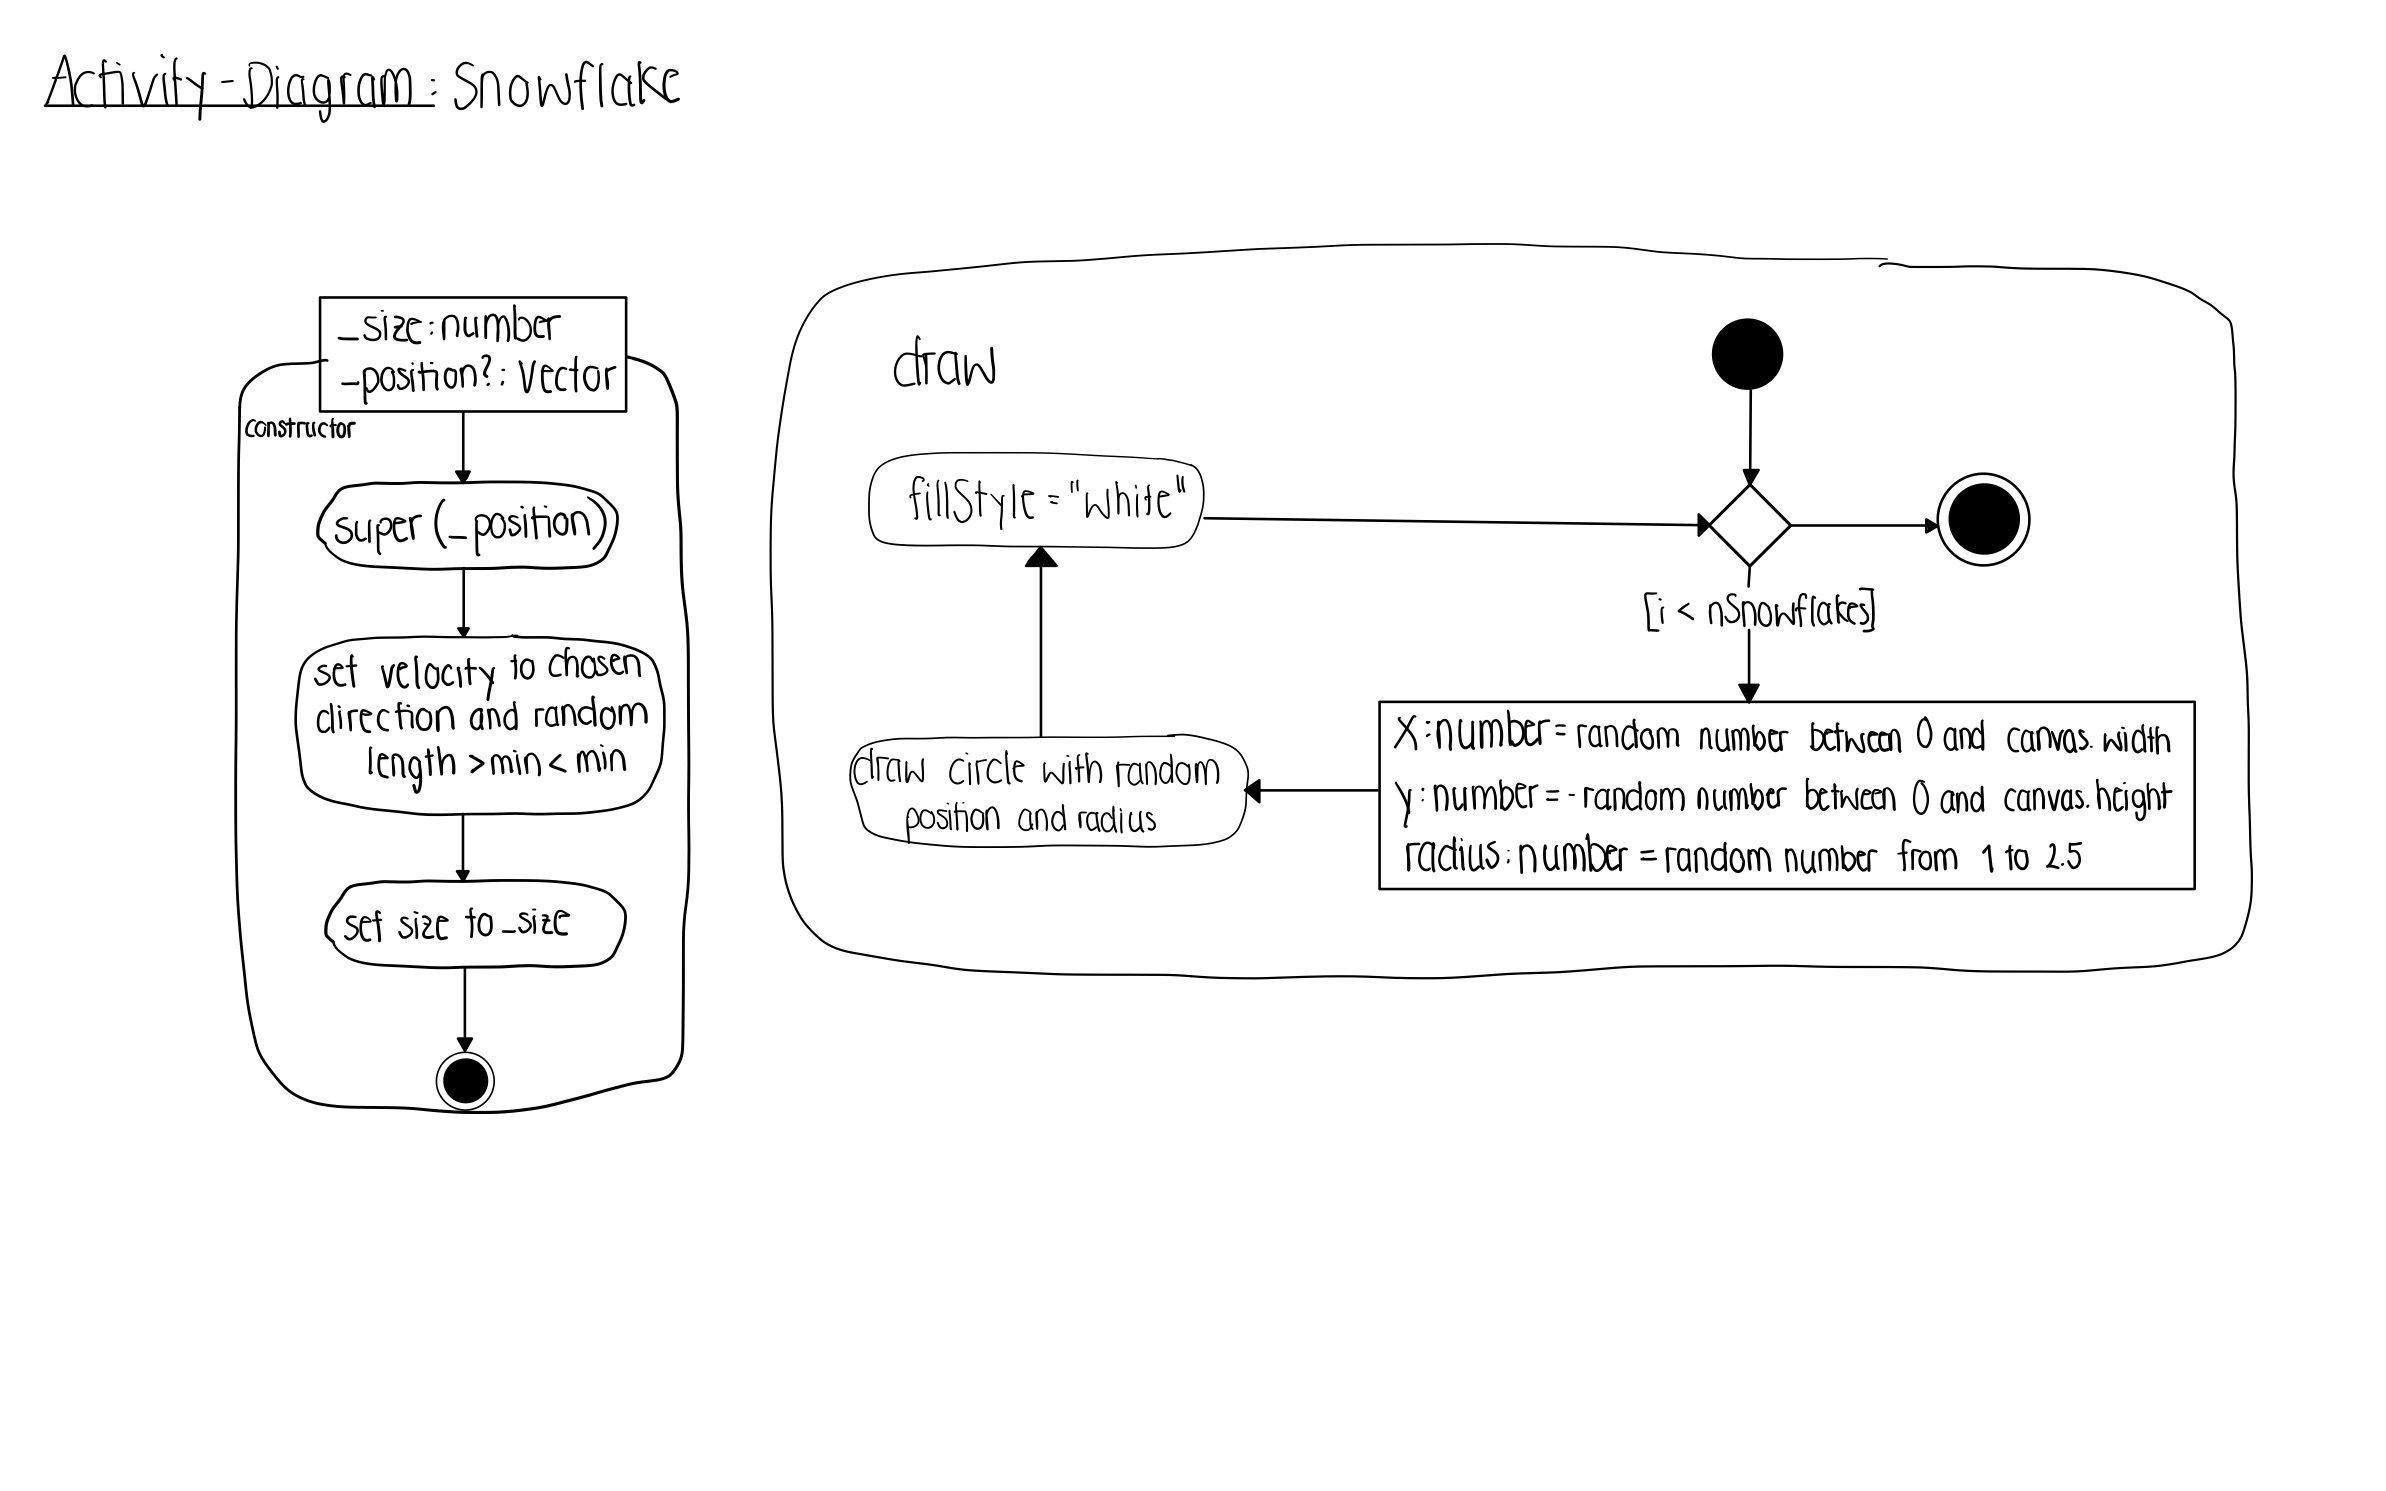 Activity-Diagram: Snowflake
_size: number
_position?: Vector
constructor
super (_position)
set velocity to chosen
direction and random
length > min < min
set size to _size
draw
fillStyle = "white"
[i < nSnowflakes]
X: number = random number between 0 and canvas.width
y: number = - random number between 0 and canvas.height
radius: number = random number from 1 to 2.5
draw circle with random
position and radius